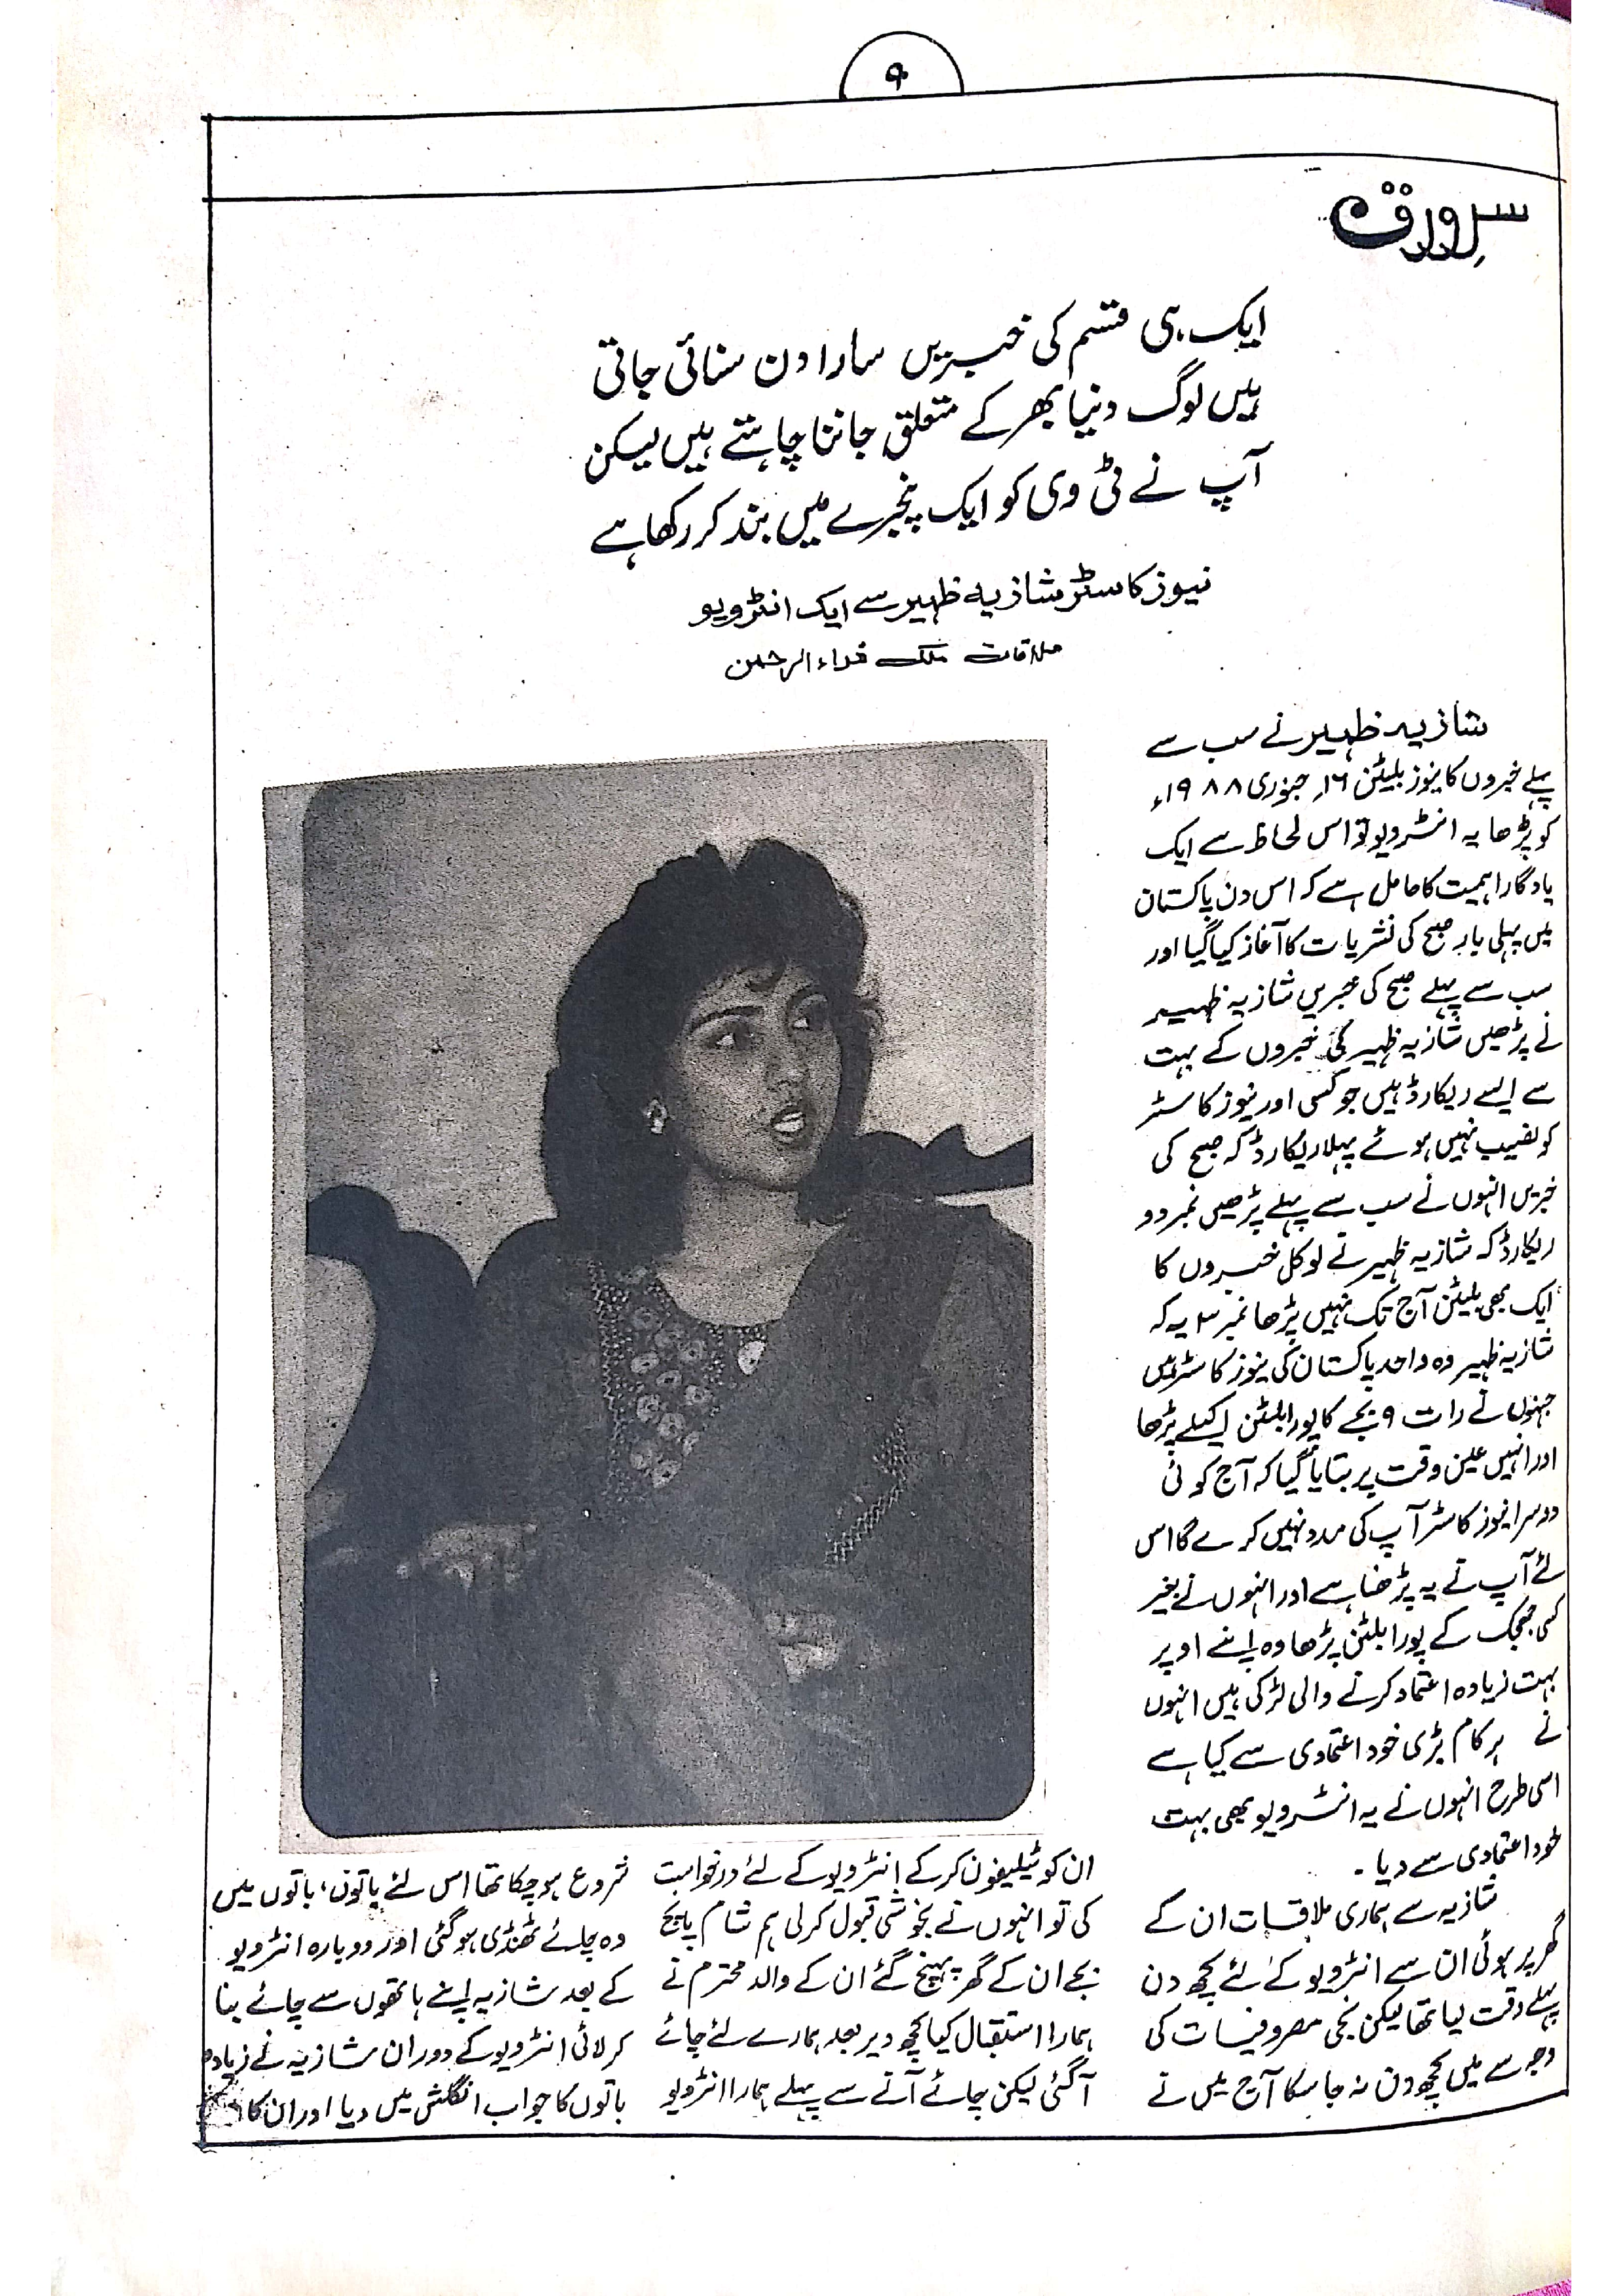 ۹
سرورق
ایک ہی قسم کی خبریں سارا دن سنائی جاتی
ہیں لوگ دنیا بھر کے متعلق جاننا چاہتے ہیں لیکن
آپ نے ٹی وی کو ایک پنجرے میں بند کر رکھا ہے
نیوز کاسٹر شازیہ ظہیر سے ایک انٹرویو
ملاقات ملک فداء الرحمن
شازیہ ظہیر نے سب سے
پہلے خبروں کا نیوز بلیٹن ۱۶ جنوری ۱۹۸۸ء
کو پڑھا یہ انٹرویو تو اس لحاظ سے ایک
یادگار اہمیت کا حامل ہے کہ اس دن پاکستان
میں پہلی بار صبح کی نشریات کا آغاز کیا گیا اور
سب سے پہلے صبح کی خبریں شازیہ ظہیر
نے پڑھیں شازیہ ظہیر کی خبروں کے بہت
سے ایسے ریکارڈ ہیں جو کسی اور نیوز کاسٹر
کو نصیب نہیں ہوئے پہلا ریکارڈ کہ صبح کی
خبریں انہوں نے سب سے پہلے پڑھیں نمبر دو
ریکارڈ کہ شازیہ ظہیر نے لوکل خبروں کا
ایک بھی بلیٹن آج تک نہیں پڑھا نمبر ۳ یہ کہ
شازیہ ظہیر وہ واحد پاکستان کی نیوز کاسٹر ہیں
جنہوں نے رات ۹ بجے کا پورا بلٹن اکیلے پڑھا
اور انہیں عین وقت پر بتایا گیا کہ آج کوئی
دوسرا نیوز کاسٹر آپ کی مدد نہیں کرے گا اس
لئے آپ نے یہ پڑھنا ہے اور انہوں نے بغیر
کسی جھجک کے پورا بلٹن پڑھا وہ اپنے اوپر
بہت زیادہ اعتماد کرنے والی لڑکی ہیں انہوں
نے ہر کام بڑی خود اعتمادی سے کیا ہے
اسی طرح انہوں نے یہ انٹرویو بھی بہت
خود اعتمادی سے دیا۔
شازیہ سے ہماری ملاقات ان کے
گھر پر ہوئی ان سے انٹرویو کے لئے کچھ دن
پہلے وقت لیا تھا لیکن نجی مصروفیات کی
وجہ سے میں کچھ دن نہ جا سکا آج میں نے
ان کو ٹیلیفون کر کے انٹرویو کے لئے درخواست
کی تو انہوں نے بخوشی قبول کر لی ہم شام پانچ
بجے ان کے گھر پہنچ گئے ان کے والد محترم نے
ہمارا استقبال کیا کچھ دیر بعد ہمارے لئے چائے
آ گئی لیکن چائے آنے سے پہلے ہمارا انٹرویو
شروع ہو چکا تھا اس لئے باتوں، باتوں میں
وہ چائے ٹھنڈی ہو گئی اور دوبارہ انٹرویو
کے بعد شازیہ اپنے ہاتھوں سے چائے بنا
کر لائی انٹرویو کے دوران شازیہ نے زیادہ
باتوں کا جواب انگلش میں دیا اور ان کا